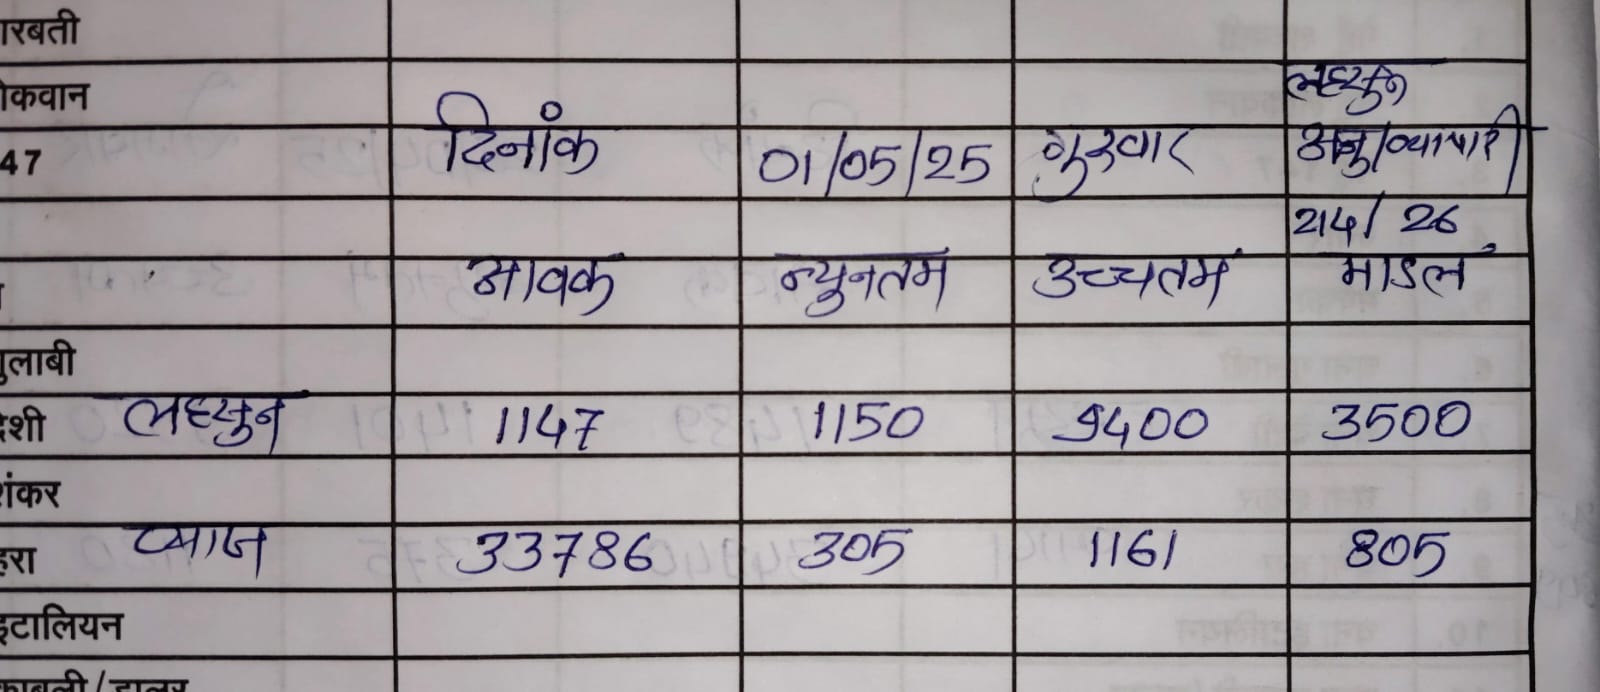 रबती
कवान
लहसुन
47 दिनांक 01/05/25 गुरुवार अनु/व्यापारी
214/ 26
आवक न्युनतम उच्चतम माडल
ुलाबी
शी लहसुन 1147 1150 9400 3500
शंकर
हरा प्याज 33786 305 1161 805
इटालियन
काबली/डालर